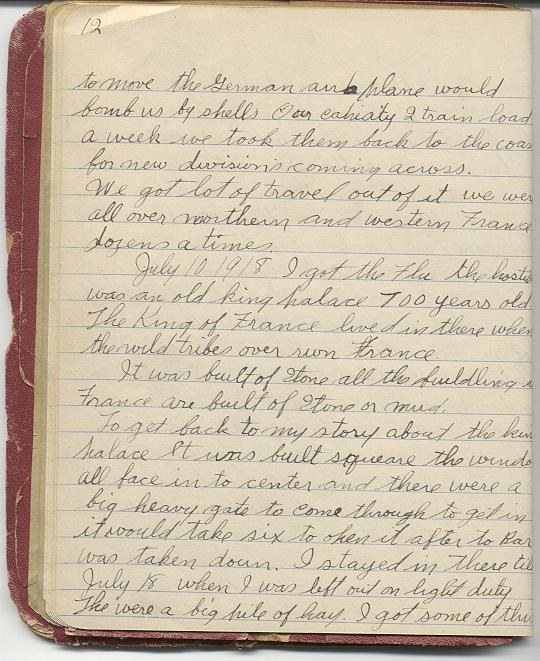 12
to move the German air plane would
bomb us by shells Our cahiaty 2 train load
a week we took them back to the coas
for new divisions coming across.
We got lot of travel out of it we wer
all over northern and western France
dozens a times.
July 10 1918 I got the Flu the hosti
was an old king palace 700 years old
The King of France lived in there when
the wild tribes over run France.
It was built of Stone all the buildling
France are built of Stone or mud.
To get back to my story about the kin
palace It was built squeare the windo
all face in to center and there were a
big heavy gate to come through to get in
it would take six to open it after to Bar
was taken doun. I stayed in there til
July 18 when I was left out on light duty
The were a big pile of hay. I got some of